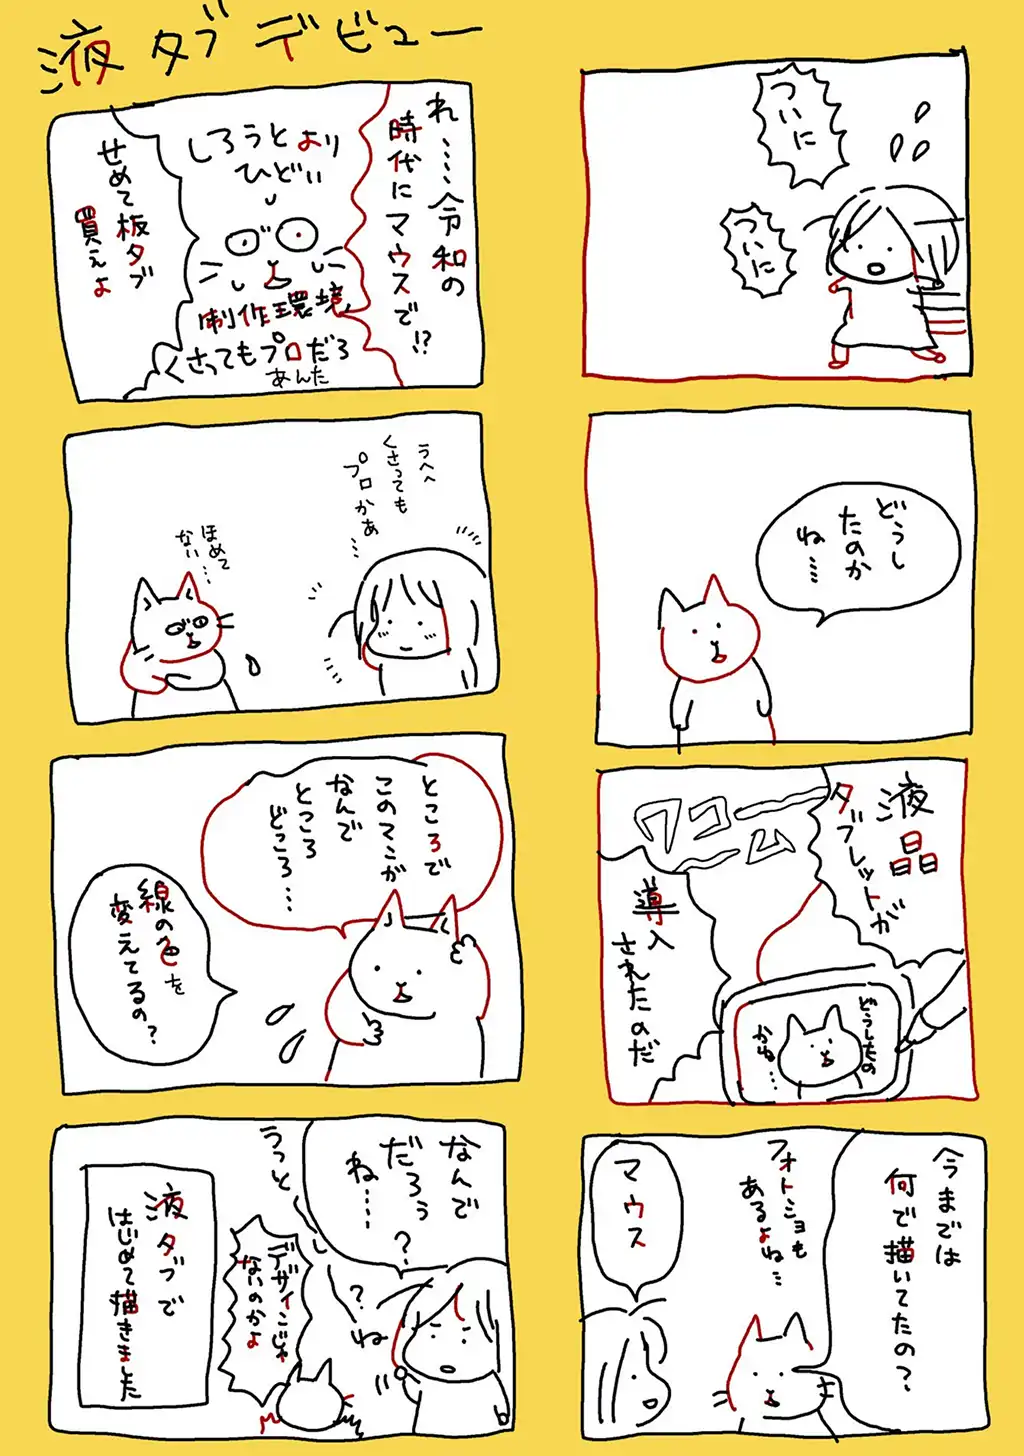 液タブデビュー
ついに
ついに
どうし
たのか
ね……
液晶
タブレットが
ワコーム
導入
されたのだ
どうしたの
かね…
今までは
何で描いてたの？
フォトショも
あるよね…
マウス
れ……令和の
時代にマウスで!?
しろうとより
ひどい
制作環境
くさってもプロだろ
あんた
せめて板タブ
買えよ
うへへ
くさっても
プロかぁ…
ほめて
ない…
ところで
このマンガ
なんで
ところ
どころ…
線の色を
変えてるの？
なんで
だろう
ね……
？
？
ね
うっとしい
デザインじゃ
ないのかよ
液タブで
はじめて描きました